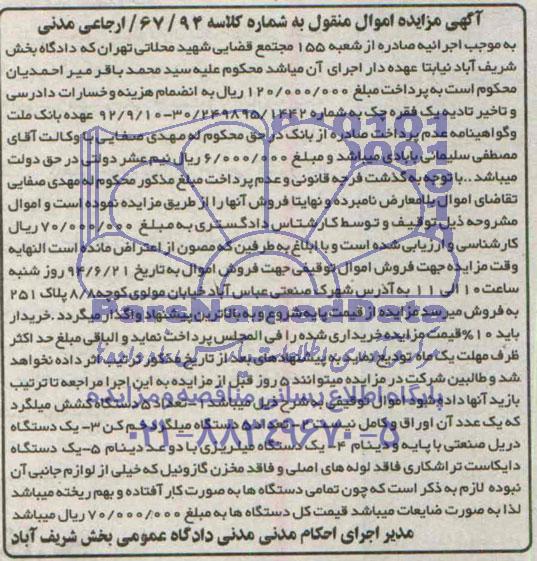 آگهی مزایده اموال منقول به شماره کلاسه ۹۴ / ۶۷ / ارجاعی مدنی
به موجب اجرائیه صادره از شعبه ۱۵۵ مجتمع قضایی شهید محلاتی تهران که دادگاه بخش
شریف آباد نیابتا عهده دار اجرای آن میباشد محکوم علیه سید محمد باقر میر احمدیان
محکوم است به پرداخت مبلغ ۱۲۰/۰۰۰/۰۰۰ ریال به انضمام هزینه و خسارات دادرسی
و تاخیر تادیه یک فقره چک به شماره ۳۰/۲۴۹۸۹۵/۱۴۴۲-۹۲/۹/۱۰ عهده بانک ملت
وگواهینامه عدم پرداخت صادره از بانک در حق محکوم له مهدی صفایی با وکالت آقای
مصطفی سلیمانی بابادی میباشد و مبلغ ۶/۰۰۰/۰۰۰ ریال نیم عشر دولتی در حق دولت
میباشد..با توجه به گذشت فرجه قانونی و عدم پرداخت مبلغ مذکور محکوم له مهدی صفایی
تقاضای اموال بلامعارض نامبرده و نهایتا فروش آنها را از طریق مزایده نموده است و اموال
مشروحه ذیل توقیف و توسط کارشناس دادگستری به مبلغ ۷۰/۰۰۰/۰۰۰ ریال
کارشناسی و ارزیابی شده است و با ابلاغ به طرفین که مصون از اعتراض مانده است النهایه
وقت مزایده جهت فروش اموال توقیفی جهت فروش اموال به تاریخ ۹۴/۶/۲۱ روز شنبه
ساعت ۱۰ الی ۱۱ به آدرس شهرک صنعتی عباس آباد خیابان مولوی کوچه ۸/۸ پلاک ۲۵۱
به فروش میرسد مزایده از قیمت پایه شروع و به بالاترین پیشنهاد واگذار میگردد .خریدار
باید ۱۰%قیمت مزایده خریداری شده را فی المجلس پرداخت نماید و الباقی مبلغ حد اکثر
ظرف مهلت یک ماه تودیع نماید به پیشنهادهای بعد از تاریخ مذکور ترتیب اثر داده نخواهد
شد و طالبین شرکت در مزایده میتوانند ۵ روز قبل از مزایده به این اجرا مراجعه تا ترتیب
بازید آنها داده شود اموال توقیفی به شرح ذیل میباشد ۱- تعداد ۵ دستگاه کشش میلگرد
که یک عدد آن اوراق و کامل نیست ۲- تعداد ۵ دستگاه میلگرد خم کن ۳- یک دستگاه
دریل صنعتی با پایه و دینام ۴- یک دستگاه میلریزی با دو عدد دینام ۵- یک دستگاه
دایکاست تراشکاری فاقد لوله های اصلی و فاقد مخزن گازوئیل که خیلی از لوازم جانبی آن
نبوده لازم به ذکر است که چون تمامی دستگاه ها به صورت کار آفتاده و بهم ریخته میباشد
لذا به صورت ضایعات میباشد قیمت کل دستگاه ها به مبلغ ۷۰/۰۰۰/۰۰۰ ریال میباشد
مدیر اجرای احکام مدنی مدنی دادگاه عمومی بخش شریف آباد
ParsNamadData
پایگاه اطلاع رسانی مناقصه و مزایده
۰۲۱-۸۸۳۴۹۶۷۰-۵